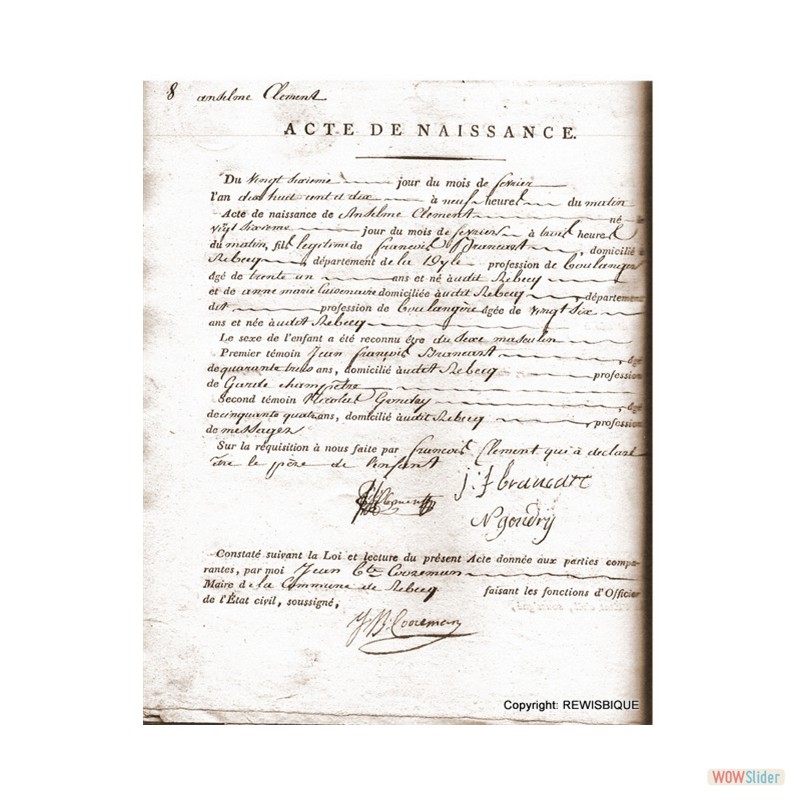 8 anselme Clement
ACTE DE NAISSANCE.
Du vingt sixieme jour du mois de fevrier
l'an dix huit cent et dix à neuf heures du matin
Acte de naissance de Anselme Clement né
vingt sixieme jour du mois de fevrier à trois heures
du matin, fils legitime de francois Brancart, domicilié à
Rebecq, département de la Dyle profession de Boulanger
âgé de trente un ans et né audit Rebecq
et de anne marie domiciliée audit Rebecq, département
dit profession de boulangère âgée de vingt six
ans et née audit Rebecq
Le sexe de l'enfant a été reconnu être du sexe masculin
Premier témoin Jean françois Brancart, âgé
de quarante trois ans, domicilié audit Rebecq profession
de Garde champêtre
Second témoin Nicolas Gondry, âgé
de cinquante quatre ans, domicilié audit Rebecq, profession
de messager
Sur la réquisition à nous faite par francois Clement qui a declaré
être le père de l'enfant
j: f brancart
f Clement
N gondry
Constaté suivant la Loi et lecture du présent Acte donnée aux parties compa-
rantes, par moi Jean Bte Cooreman
Maire de la Commune de Rebecq faisant les fonctions d'Officier
de l'État civil, soussigné,
J B Cooreman
Copyright: REWISBIQUE
WOWSlider